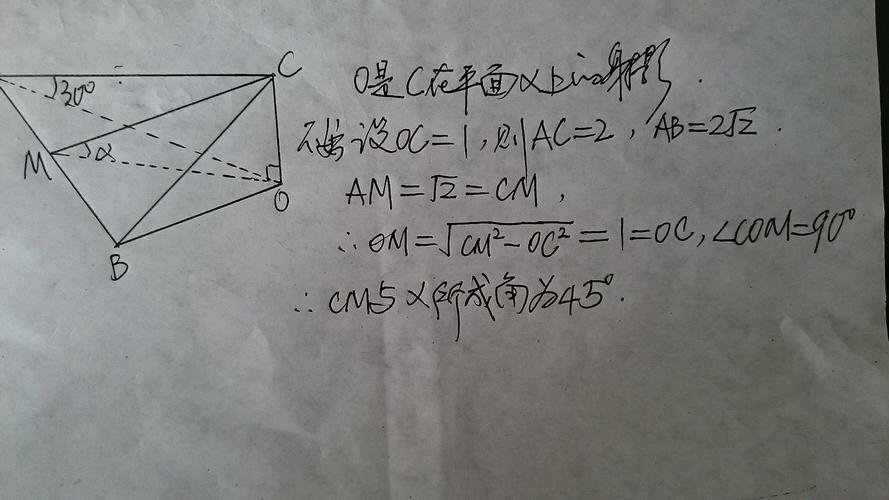 C
30°
M
α
O
B
O是C在平面α上的射影.
不妨设OC=1,则AC=2, AB=2√2.
AM=√2=CM,
∴OM=√CM²-OC²=1=OC,∠COM=90°
∴CM与α所成角为45°.